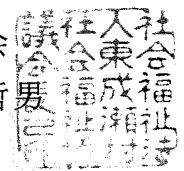 社会福祉法
人東成瀬村
社会福祉
議会
男